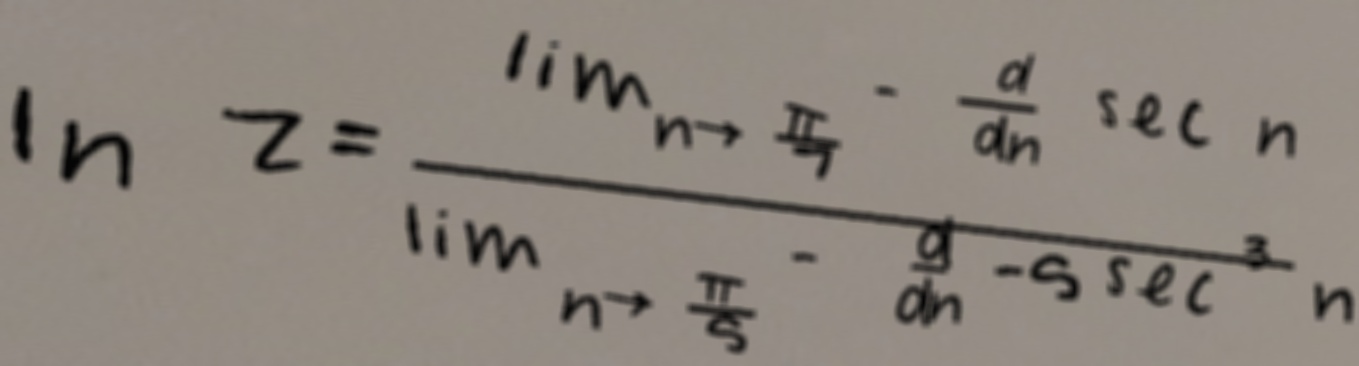 ln z = \frac{\lim_{n \to \frac{\pi}{7}^-} \frac{d}{dn} \sec n}{\lim_{n \to \frac{\pi}{5}^-} \frac{d}{dn} -5 \sec^3 n}